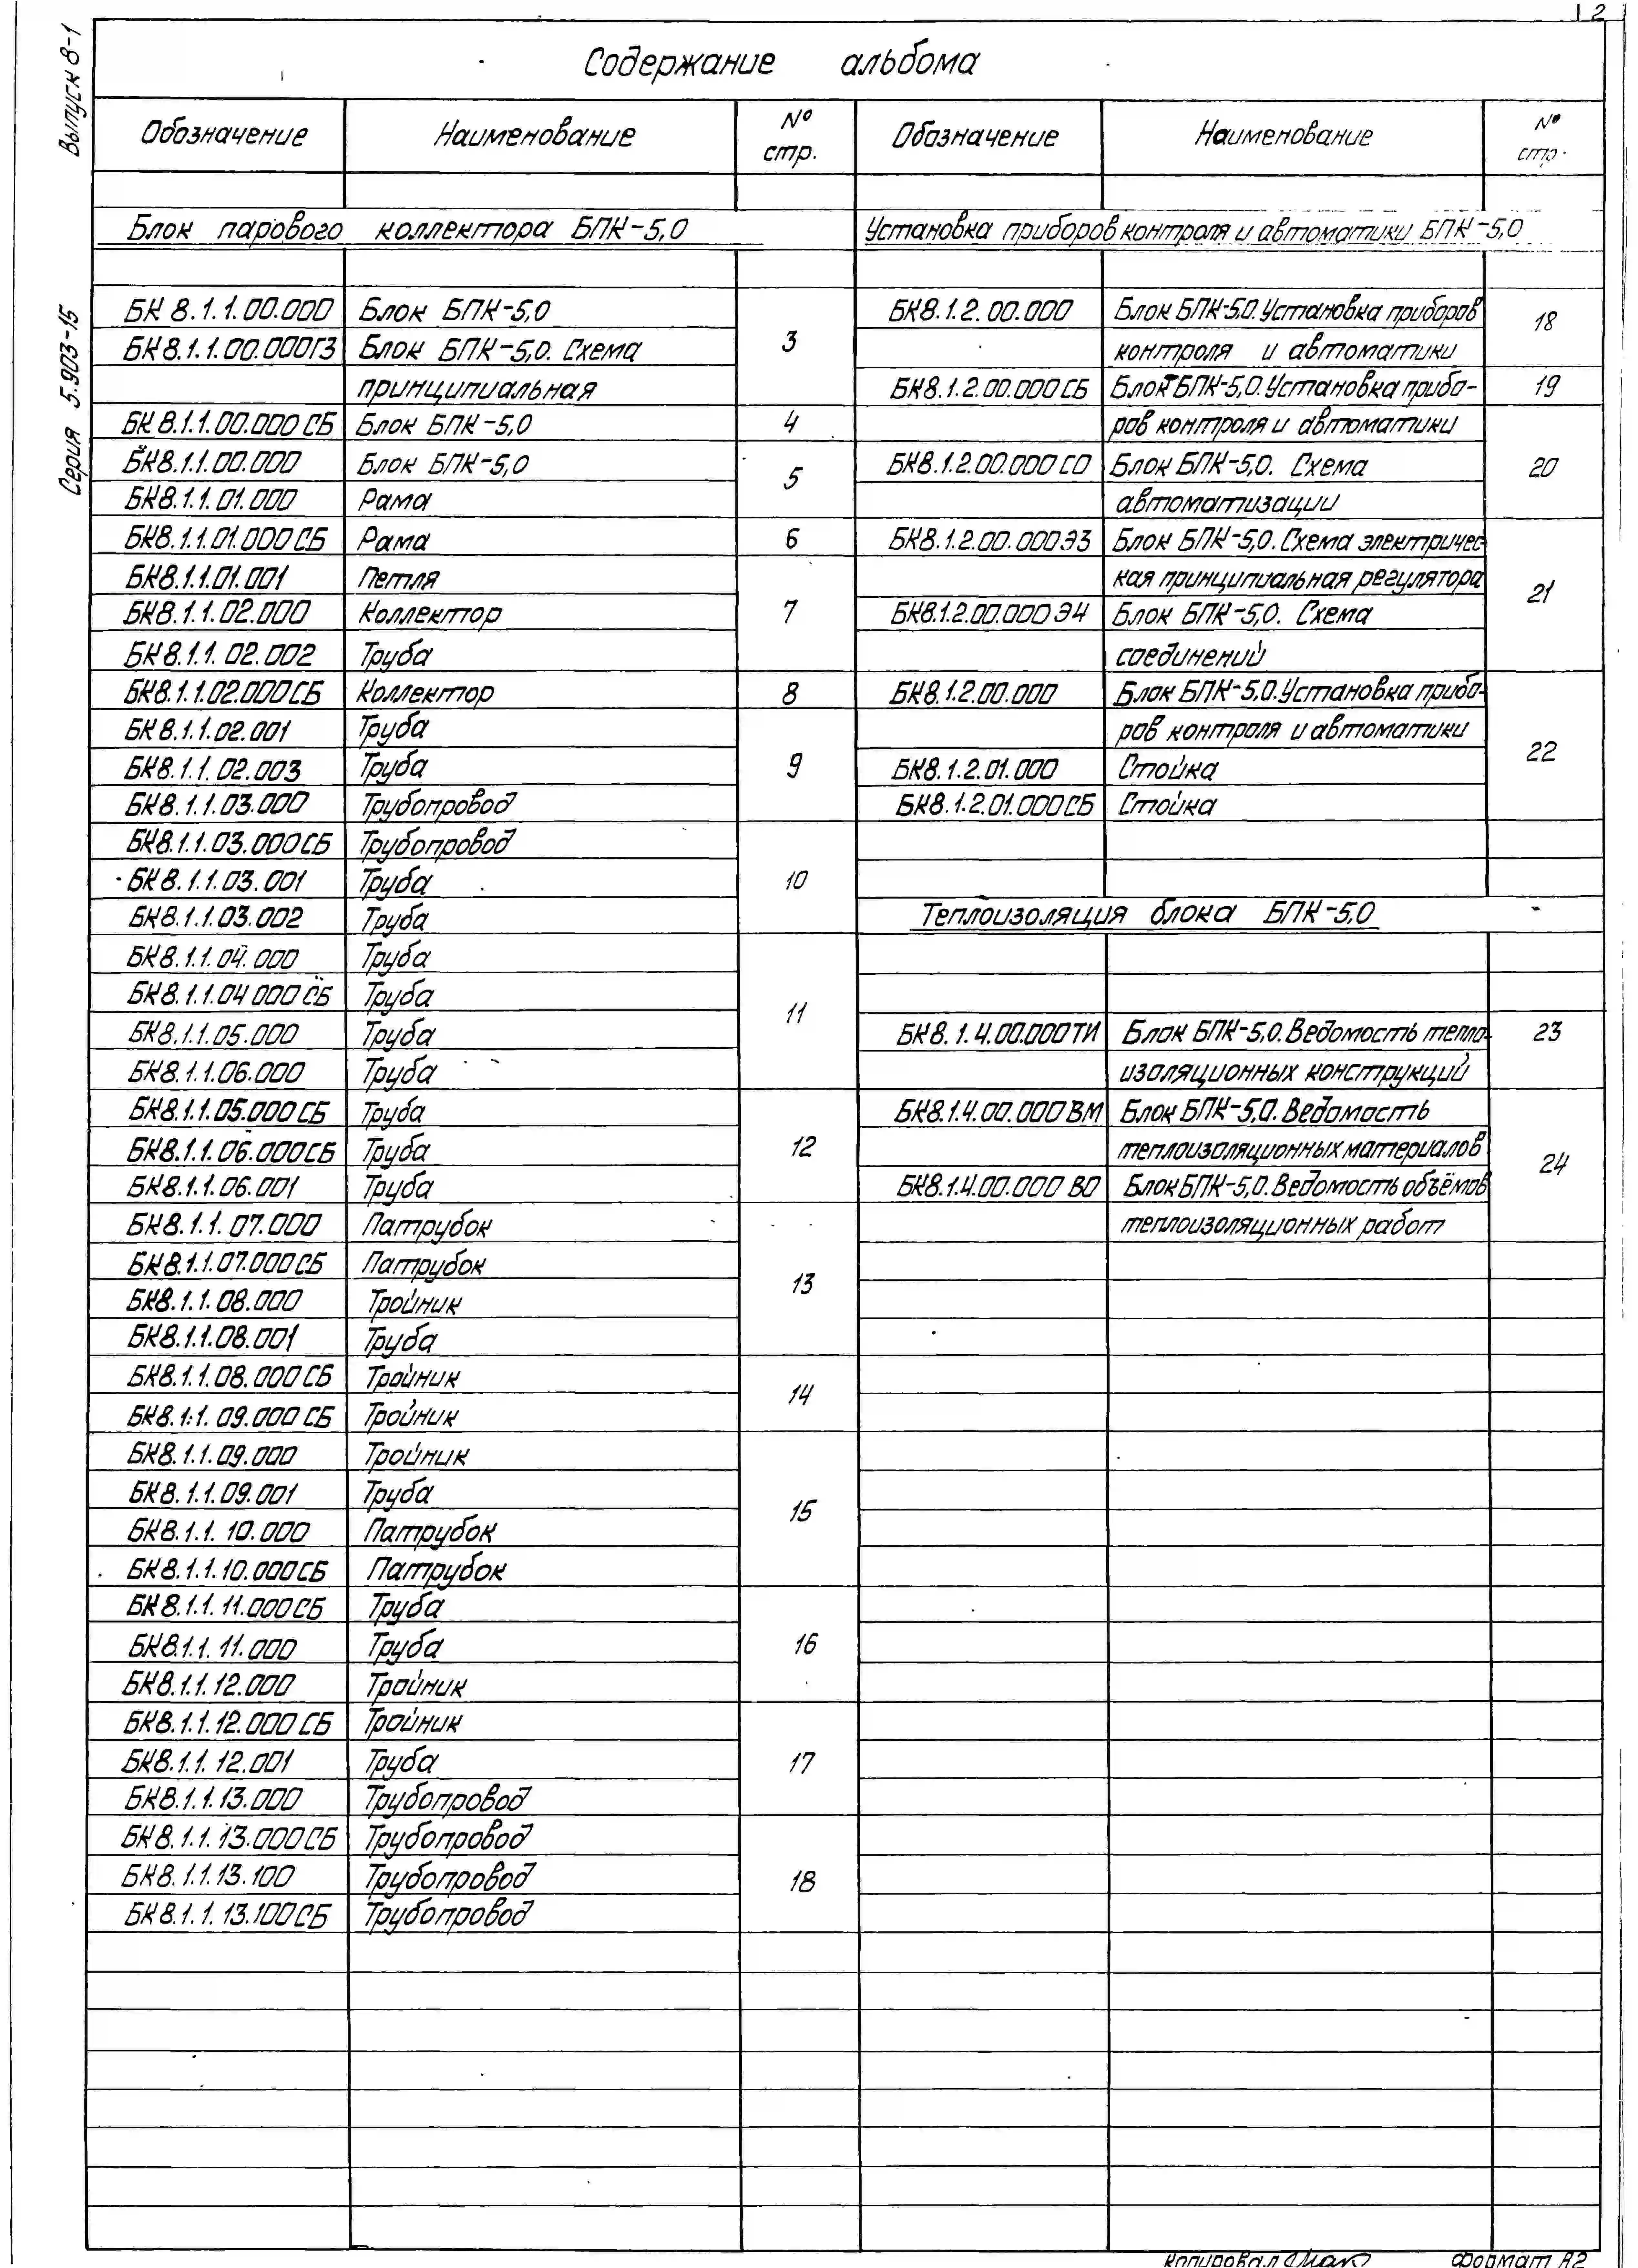 2
Выпуск 8-1
Серия 5.903-15
Содержание альбома
Обозначение Наименование № стр.
Блок парового коллектора БПК-5,0
БК 8.1.1.00.000 Блок БПК-5,0 3
БК8.1.1.00.000ГЗ Блок БПК-5,0. Схема
принципиальная
БК 8.1.1.00.000 СБ Блок БПК-5,0 4
БК8.1.1.00.000 Блок БПК-5,0 5
БК8.1.1.01.000 Рама
БК8.1.1.01.000СБ Рама 6
БК8.1.1.01.001 Петля 7
БК8.1.1.02.000 Коллектор
БК8.1.1.02.002 Труба
БК8.1.1.02.000СБ Коллектор 8
БК8.1.1.02.001 Труба 9
БК8.1.1.02.003 Труба
БК8.1.1.03.000 Трубопровод
БК8.1.1.03.000СБ Трубопровод 10
БК8.1.1.03.001 Труба
БК8.1.1.03.002 Труба
БК8.1.1.04.000 Труба 11
БК8.1.1.04.000СБ Труба
БК8.1.1.05.000 Труба
БК8.1.1.06.000 Труба
БК8.1.1.05.000СБ Труба 12
БК8.1.1.06.000СБ Труба
БК8.1.1.06.001 Труба
БК8.1.1.07.000 Патрубок 13
БК8.1.1.07.000СБ Патрубок
БК8.1.1.08.000 Тройник
БК8.1.1.08.001 Труба
БК8.1.1.08.000СБ Тройник 14
БК8.1.1.09.000СБ Тройник
БК8.1.1.09.000 Тройник 15
БК8.1.1.09.001 Труба
БК8.1.1.10.000 Патрубок
БК8.1.1.10.000СБ Патрубок
БК8.1.1.11.000СБ Труба 16
БК8.1.1.11.000 Труба
БК8.1.1.12.000 Тройник
БК8.1.1.12.000СБ Тройник 17
БК8.1.1.12.001 Труба
БК8.1.1.13.000 Трубопровод
БК8.1.1.13.000СБ Трубопровод 18
БК8.1.1.13.100 Трубопровод
БК8.1.1.13.100СБ Трубопровод
Обозначение Наименование № стр.
Установка приборов контроля и автоматики БПК-5,0
БК8.1.2.00.000 Блок БПК-5.0. Установка приборов 18
контроля и автоматики
БК8.1.2.00.000СБ Блок БПК-5,0. Установка прибо- 19
ров контроля и автоматики
БК8.1.2.00.000СО Блок БПК-5,0. Схема 20
автоматизации
БК8.1.2.00.000ЭЗ Блок БПК-5,0. Схема электричес- 21
кая принципиальная регулятора
БК8.1.2.00.000Э4 Блок БПК-5,0. Схема
соединений
БК8.1.2.00.000 Блок БПК-5,0. Установка прибо- 22
ров контроля и автоматики
БК8.1.2.01.000 Стойка
БК8.1.2.01.000СБ Стойка
Теплоизоляция блока БПК-5,0
БК8.1.4.00.000ТИ Блок БПК-5,0. Ведомость тепло- 23
изоляционных конструкций
БК8.1.4.00.000ВМ Блок БПК-5,0. Ведомость 24
теплоизоляционных материалов
БК8.1.4.00.000 ВО Блок БПК-5,0. Ведомость объёмов
теплоизоляционных работ
Копировал Формат А2